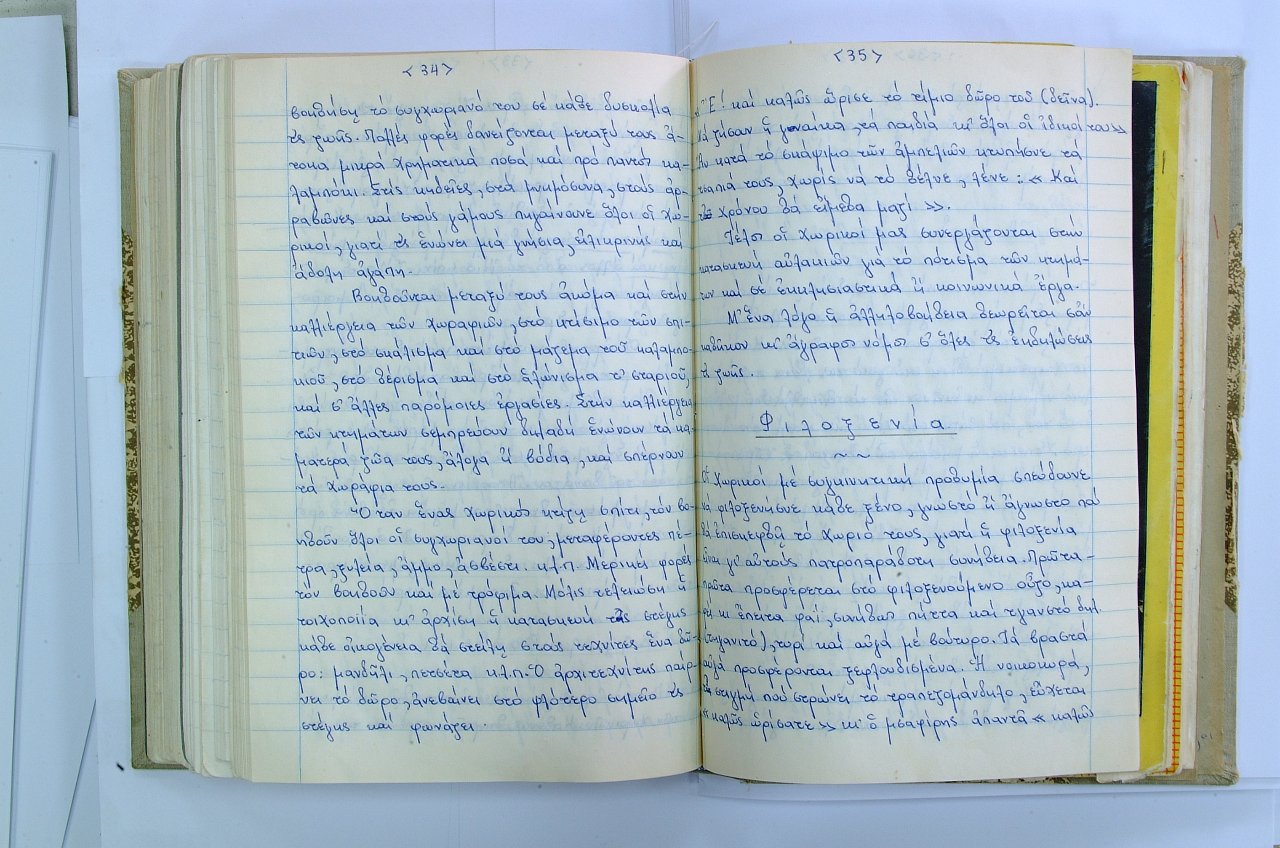 <34>
βοηθήσῃ τό συγχωριανό του σέ κάθε δυσκολία
τῆς ζωῆς. Πολλές φορές δανείζονται μεταξύ τους ἄ-
τοκα μικρά χρηματικά ποσά καί πρό παντός κα-
λαμπόκι. Στίς κηδεῖες, στά μνημόσυνα, στούς ἀρ-
ραβῶνες καί στούς γάμους πηγαίνουνε ὅλοι οἱ χω-
ρικοί, γιατί τούς ἑνώνει μιά γνήσια, εἰλικρινής καί
ἄδολη ἀγάπη.
Βοηθοῦνται μεταξύ τους ἀκόμα καί στήν
καλλιέργεια τῶν χωραφιῶν, στό κτίσιμο τῶν σπι-
τιῶν, στό σκάλισμα καί στό μάζεμα τοῦ καλαμπο-
κιοῦ, στό θέρισμα καί στό ἁλώνισμα τ' σταριοῦ,
καί σ' ἄλλες παρόμοιες ἐργασίες. Στήν καλλιέργεια
τῶν κτημάτων σεμπρεύουν δηλαδή ἑνώνουν τά κα-
ματερά ζῶα τους, ἄλογα ἤ βόδια, καί σπέρνουν
τά χωράφια τους.
Ὅταν ἕνας χωρικός κτίζῃ σπίτι, τόν βο-
ηθοῦν ὅλοι οἱ συγχωριανοί του, μεταφέροντες πέ-
τρα, ξυλεία, ἄμμο, ἀσβέστι. κ.λ.π. Μερικές φορές
τόν βοηθοῦν καί μέ τρόφιμα. Μόλις τελειώσῃ ἡ
τοιχοποιία κι' ἀρχίσῃ ἡ κατασκευή τῆς στέγης
κάθε οἰκογένεια θά στείλῃ στούς τεχνίτες ἕνα δῶ-
ρο: μανδῆλι, πετσέτα κ.λ.π. Ὁ ἀρχιτεχνίτης παίρ-
νει τό δῶρο, ἀνεβαίνει στό ψηλότερο σημεῖο τῆς
στέγης καί φωνάζει.
<35>
«Ἔ! καί καλῶς ὥρισε τό τίμιο δῶρο τοῦ (δεῖνα).
Νά ζήσουν ἡ γυναίκα, τά παιδιά κι' ὅλοι οἱ ἰδικοί του»
Ἄν κατά τό σκάψιμο τῶν ἀμπελιῶν κτυπήσουνε τά
τσαπιά τους, χωρίς νά τό θέλουνε, λένε: «Καί
τοῦ χρόνου θά εἴμεθα μαζί».
Τέλος οἱ χωρικοί μας συνεργάζονται στήν
κατασκευή αὐλακιῶν γιά τό πότισμα τῶν κτημά-
των καί σέ ἐκκλησιαστικά ἤ κοινωνικά ἔργα.
Μ' ἕνα λόγο ἡ ἀλληλοβοήθεια θεωρεῖται σάν
καθῆκον κι' ἄγραφος νόμος σ' ὅλες τίς ἐκδηλώσεις
τῆς ζωῆς.
Φιλοξενία
~ ~
Οἱ χωρικοί μέ συγκινητική προθυμία σπεύδουνε
νά φιλοξενήσουνε κάθε ξένο, γνωστό ἤ ἄγνωστο πού
θά ἐπισκεφθῇ τό χωριό τους, γιατί ἡ φιλοξενία
εἶναι γι' αὐτούς πατροπαράδοτη συνήθεια. Πρῶτα-
πρῶτα προσφέρεται στό φιλοξενούμενο οὖζο, κα-
φέ κι ἔπειτα φαΐ, συνήθως πήττα καί τγανστό δηλ.
(τηγανιτό), τυρί καί αὐγά μέ βούτυρο. Τά βραστά
αὐγά προσφέρονται ξεφλουδισμένα. Ἡ νοικοκυρά,
τή στιγμή πού στρώνει τό τραπεζομάνδηλο, εὔχεται
«καλῶς ὡρίσατε» κι' ὁ μσαφίρης ἀπαντᾶ «καλῶς